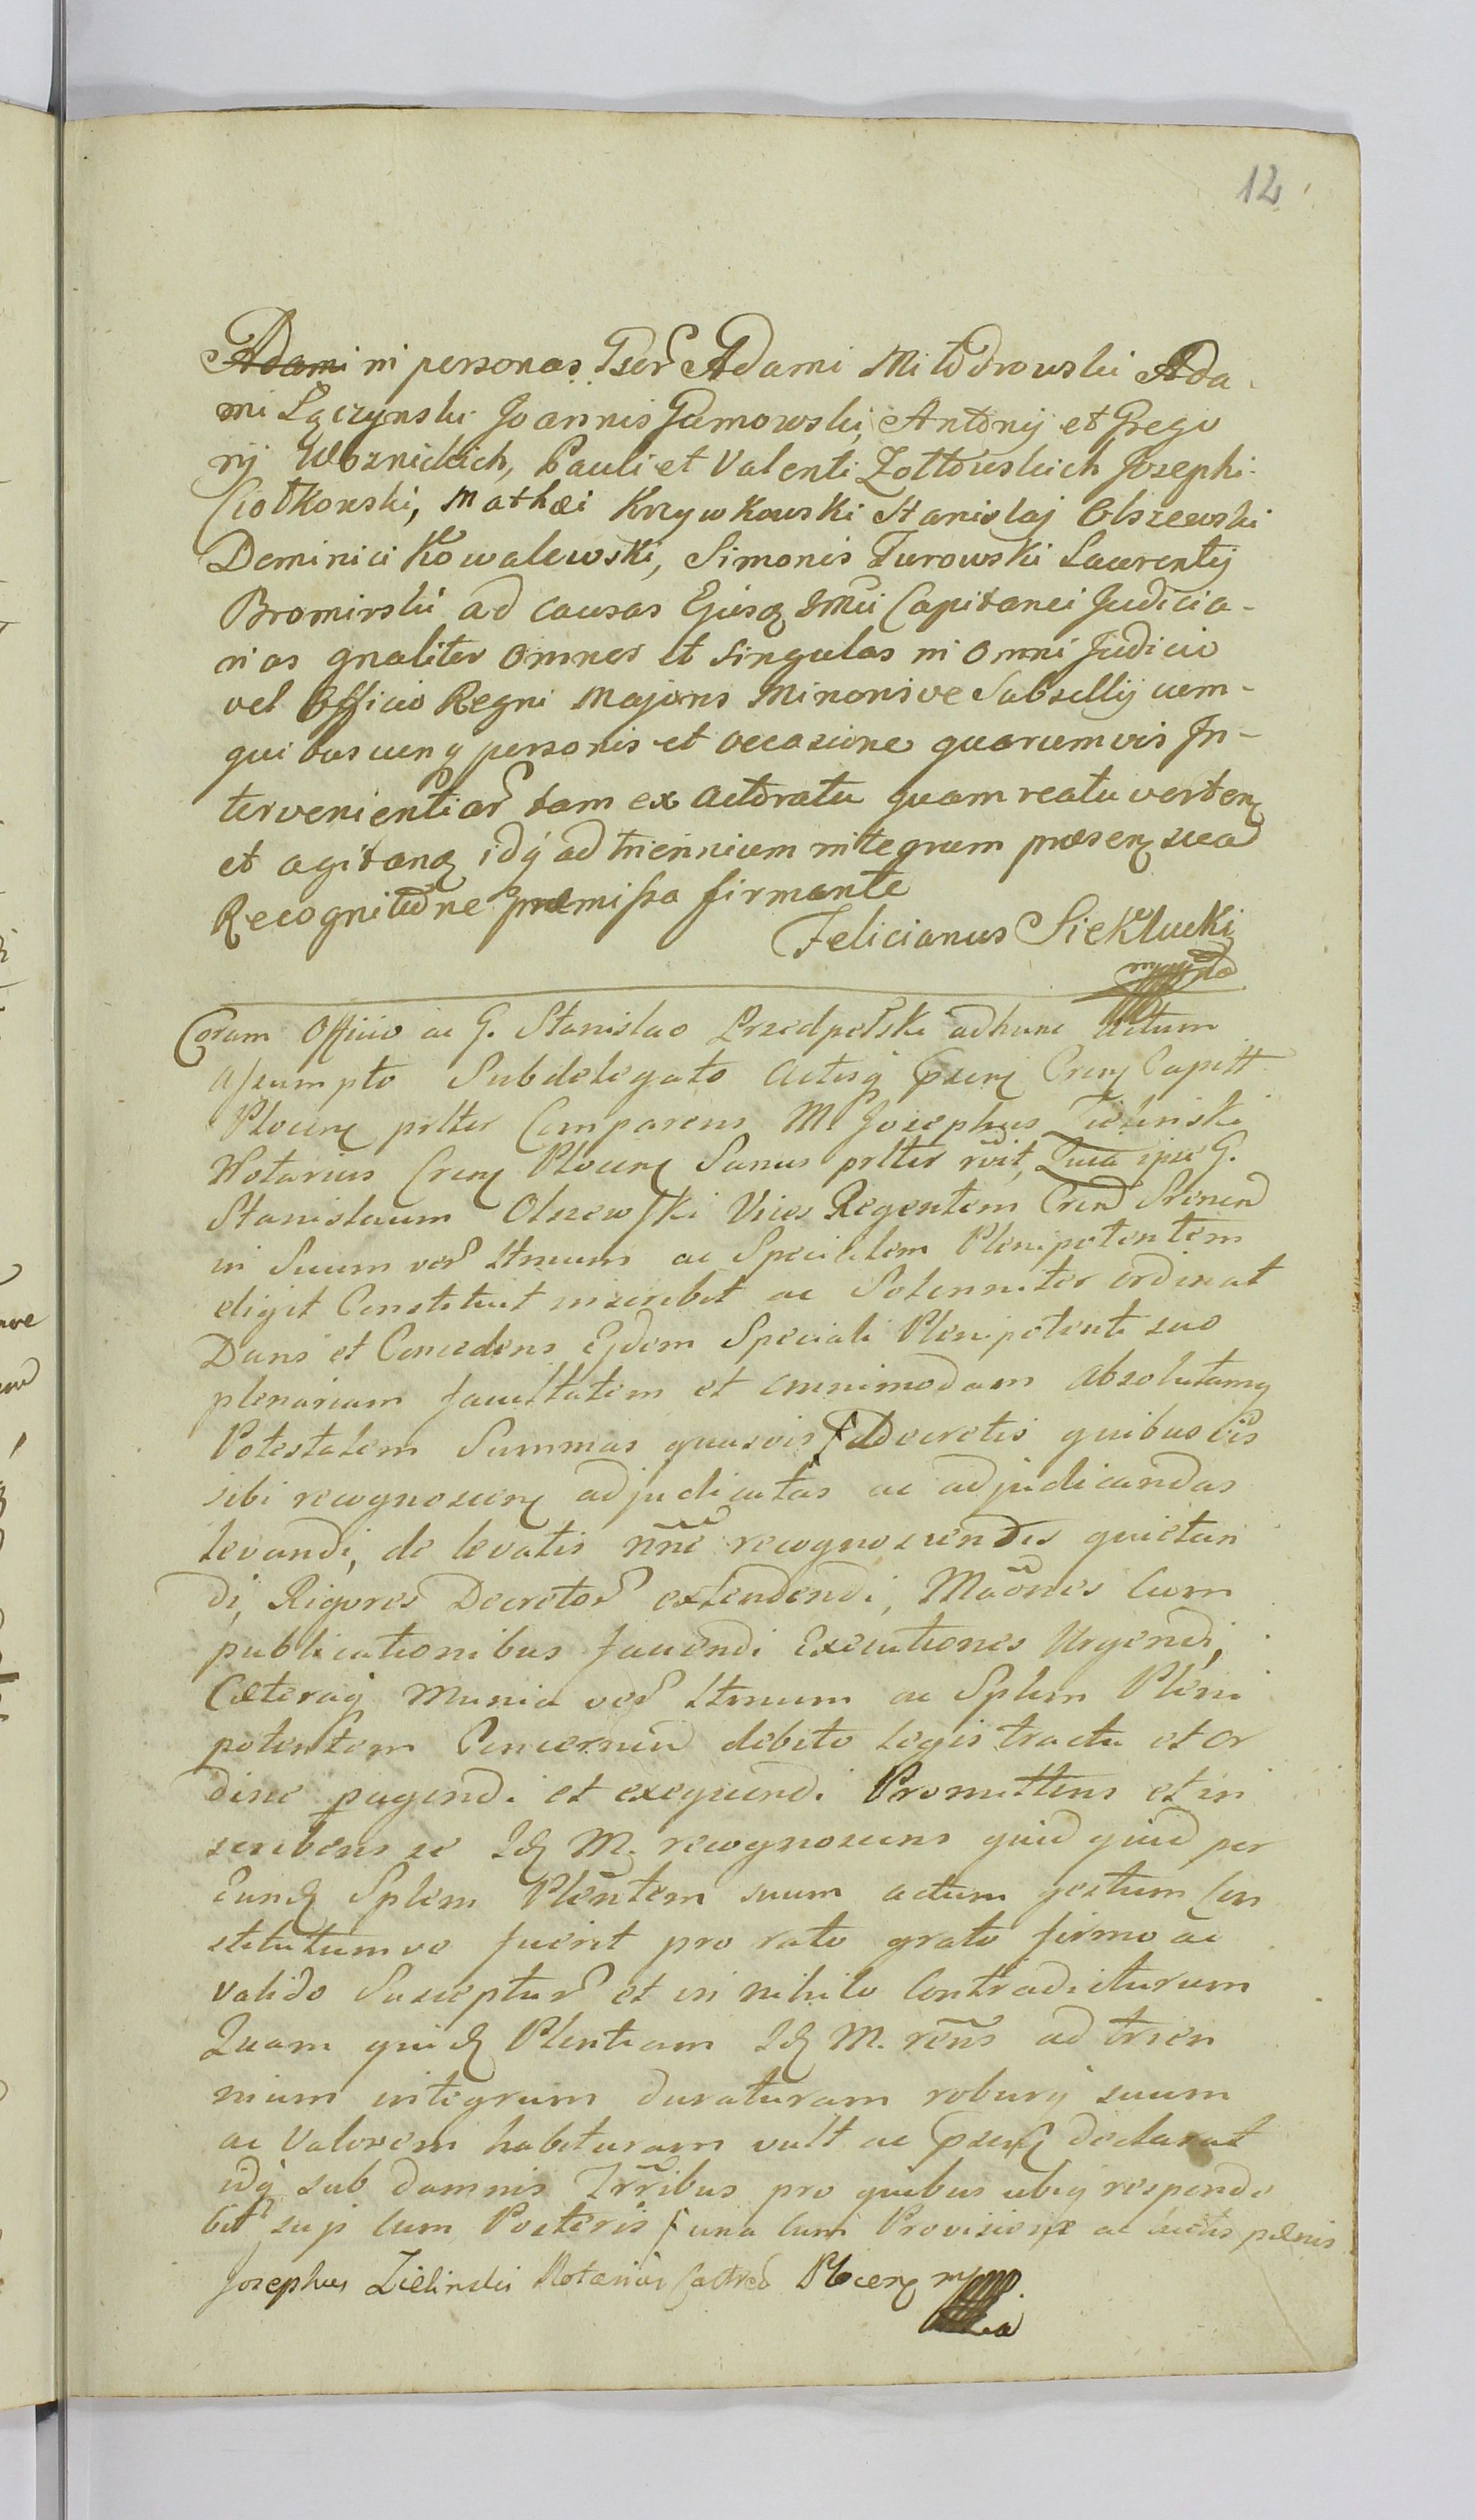 12
Adami in personas Gser Adami Milodrowski Ada-
mi Lączynski Joannis Gumowski, Antonij et Grego
rij Woznickich, Pauli et Valenti Zołtowskich Josephi
Ciołkowski, Mathæi Krzywkowski Stanislaj Olszewski
Dominici Kowalewski, Simonis Turowski Laurentij
Bromirski ad causas Ejusq Imii Capitanei Judicia-
rias gnaliter omnes et singulas in omni Judicio
vel Officio Regni Majoris Minorisve Subsellij cum-
quibuscunq personis et occasione quarumvis In-
tervenientiar tam ex actoratu quam reatu verten
et agitan idq ad triennium integrum præsen sua
Recognitione præmissa firmante
Felicianus Sieklucki
mppa
Coram Officio ac G. Stanislao Przedpełski ad hunc actum
assumpto Subdelegato Actisq psen Cren Capitt
Plocen prlter Comparens M. Josephus Zielinski
Notarius Cren Plocen Sanus prlter rcit, Quia ipse G.
Stanislaum Olszewski Vices Regentem Cren Srenen
in Suum ver ltmum ac Specialem Plenipotentem
eligit Constituit inscribit ac Solenniter ordinat
Dans et Concedens Ejdem Speciali Plenipotenti suo
plenariam facultatem et omnimodam absolutamq
Potestatem Summas quasvis Decretis quibusvis
sibi recognoscen adjudicatas ac adjudicandas
levandi, de levatis nne recognoscendis quietan
di, Rigores Decretor extendendi, Maones Cum
publicationibus faciendi Executiones Urgendi,
Cæteraq Munia ver ltmum ac Splem Pleni
potentem Concernen debito legis tractu et or
dine pagendi et exequendi Promittens et in
scribens se Id M. recognoscens quid quid per
Eund Splem Plentem suum actum gestum Con
stitutumve fuerit pro rato grato firmo ac
valido Susceptur et in nihilo Contradicturum
Quam quid Plentiam Id M. rens ad trien
nium integrum duraturam roburq suum
ac Valorem habituram vult ac psen declarat
idq sub damnis Trribus pro quibus ubiq responde
bit sup cum Posteris una cum Provisione ac pænis
Josephus Zielinski Notarius Castren Plocen mppa